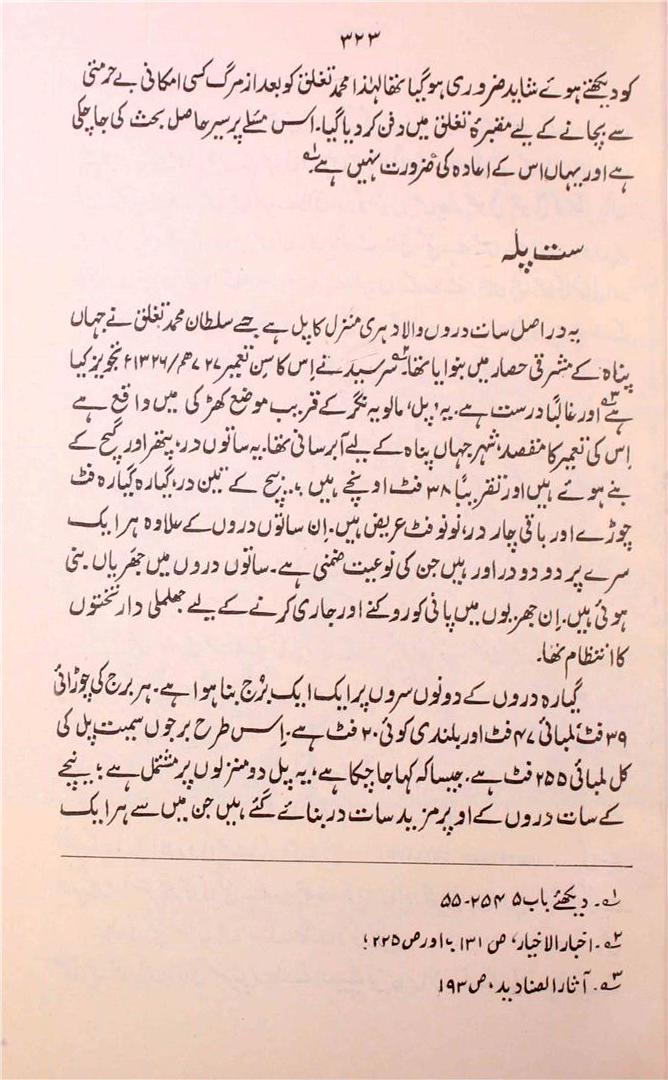 ۳۲۳
کو دیکھتے ہوئے شاید ضروری ہوگیا تھا لہٰذا محمد تغلق کو بعد از مرگ کسی امکانی بے حرمتی
سے بچانے کے لیے مقبرۂ تغلق میں دفن کر دیا گیا۔ اس مسئلے پر سیر حاصل بحث کی جاچکی
ہے اور یہاں اس کے اعادہ کی ضرورت نہیں ہے۔؎۱
ست پلہ
یہ دراصل سات دروں والا دہری منزل کا پل ہے جسے سلطان محمد تغلق نے جہاں
پناہ کے مشرقی حصار میں بنوایا تھا۔؎۲ سرسید نے اِس کا سنِ تعمیر ۷۲۷ھ/۱۳۲۶ء تجویز کیا
ہے؎۳ اور غالباً درست ہے۔ یہ ’پل‘ مالویہ نگر کے قریب موضع کھڑکی میں واقع ہے
اِس کی تعمیر کا مقصد، شہر جہاں پناہ کے لیے آبرسانی تھا۔ یہ ساتوں در، پتھر اور گچ کے
بنے ہوئے ہیں اور تقریباً ۳۸ فٹ اونچے ہیں ؛ بیچ کے تین در، گیارہ گیارہ فٹ
چوڑے اور باقی چار در، نو نو فٹ عریض ہیں۔ اِن ساتوں دروں کے علاوہ ہر ایک
سرے پر دو دو در اور ہیں جن کی نوعیت ضمنی ہے۔ ساتوں دروں میں جھریاں بنی
ہوئی ہیں۔ اِن جھریوں میں پانی کو روکنے اور جاری کرنے کے لیے جھلملی دار تختوں
کا انتظام تھا۔
گیارہ دروں کے دونوں سروں پر ایک ایک بُرج بنا ہوا ہے۔ ہر برج کی چوڑائی
۳۹ فٹ لمبائی ۴۷ فٹ اور بلندی کوئی ۲۰ فٹ ہے۔ اِس طرح برجوں سمیت پل کی
کل لمبائی ۲۵۵ فٹ ہے۔ جیسا کہ کہا جاچکا ہے، یہ پل دو منزلوں پر مشتمل ہے ؛ نیچے
کے سات دروں کے اوپر مزید سات در بنائے گئے ہیں جن میں سے ہر ایک
؎۱۔ دیکھئے باب ۵ ۲۵۴-۵۵
؎۲۔ اخبار الاخیار، ص ۱۳۱ ب اور ص ۲۲۵ ؛
؎۳۔ آثار الصنادید، ص ۱۹۳